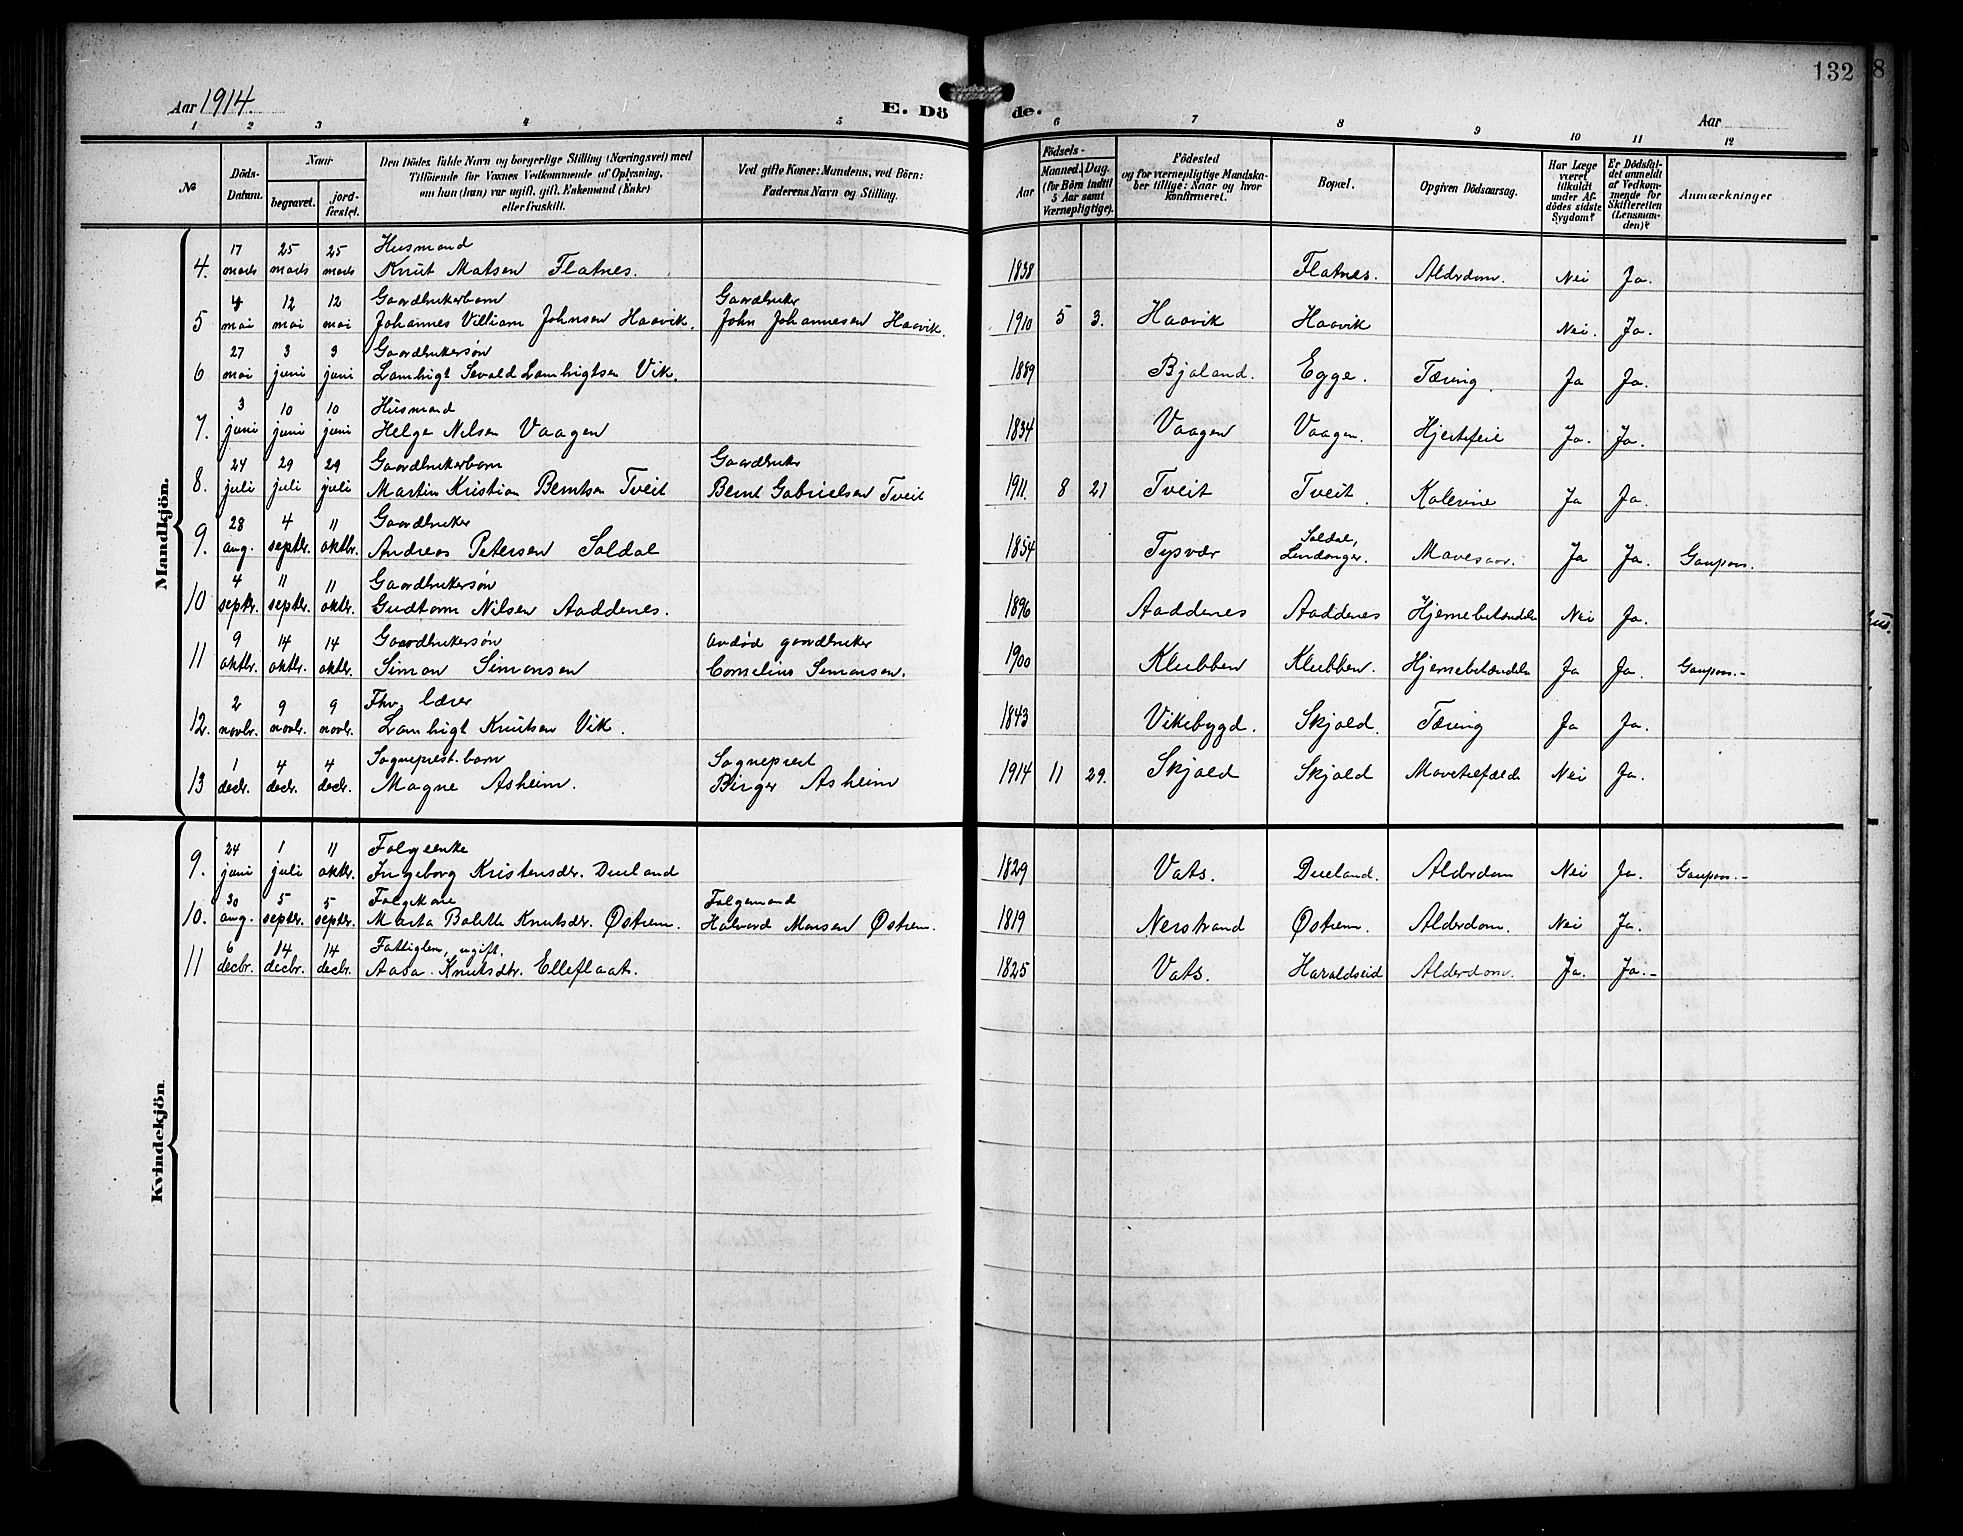 132
8
Aar 1914.
E. Dö de.
Aar
1 2 3 4 5 6 7 8 9 10 11 12
№
Döds-Datum.
Naar
begravet.
jord-fæstet.
Den Dödes fulde Navn og borgerlige Stilling (Næringsvei) med
Tilföiende for Voxnes Vedkommende af Oplysning,
om hun (han) var ugift, gift, Enkemand (Enke)
eller fraskilt.
Ved gifte Koner: Mandens, ved Börn:
Faderens Navn og Stilling.
Födsels-
Aar
Maaned. Dag.
(for Börn indtil
5 Aar samt
Værnepligtige).
Födested
og for værnepligtige Mandska-
ber tillige: Naar og hvor
konfirmeret.
Bopæl.
Opgiven Dödsaarsag.
Har Læge
været
tilkaldt
under Af-
dödes sidste
Sygdom?
Er Dödsfal-
det anmeldt
af Vedkom-
mende for
Skifteretten
(Lensman-
den)?
Anmærkninger
Mandkjön.
17 25 25 Husmand
4. mars mars mars Knut Matsen Flatnes. 1838 Flatnes. Alderdom. Nei Ja.
4 12 12 Gaardbrukerbarn Gaardbruker
5 mai mai mai Johannes Villiam Johnsen Haavik. John Johannesen Haavik. 1910 5 3. Haavik Haavik Nei. Ja.
27 3 3 Gaardbrukersøn
6 mai juni juni Lambrigt Sevald Lambrigtsen Vik. 1889 Bjoland. Egge. Tæring. Ja Ja.
3 10 10 Husmand
7. juni juni juni Helge Nilsen Vaagen 1834 Vaagen Vaagen. Hjertefeil Ja. Ja.
24 29 29 Gaardbrukerbarn Gaardbruker
8. juli juli juli Martin Kristian Berntsen Tveit Bernt Gabrielsen Tveit 1911. 8 21 Tveit Tveit. Kolerine Ja Ja.
28 4 11 Gaardbruker
9. aug. septbr. oktbr. Andreas Petersen Soldal 1854 Tysvær Soldal, Lindanger. Mavesaar. Ja Ja. Gaupaa.
4 11 11 Gaardbrukersøn
10 septbr. septbr. oktbr. Gudtorm Nilsen Aaddenes. 1896 Aaddenes Aaddenes Hjernebetændelse Nei Ja.
9 14 14 Gaardbrukersøn avdød gaardbruker
11 oktbr. oktbr. oktbr. Simon Simonsen Cornelius Simonsen. 1900 Klubben Klubben. Hjernebetændelse Ja Ja. Gaupaa.-
2 9 9 Fhv. lærer
12. novbr. novbr. novbr. Lambrigt Knutsen Vik. 1843 Vikebygd. Skjold. Tæring Ja Ja.
1 4 4 Sogneprest.barn Sogneprest
13 decbr. decbr. decbr. Magne Asheim. Birger Asheim 1914 11 29. Skjold Skjold Mavetilfælde Nei Ja.
Kvindekjön
24 1 11 Folgeenke
9. juni juli oktbr. Ingeborg Kristensdtr. Dueland 1829 Vats. Dueland. Alderdom Nei Ja. Gaupaa.-
30 5 5 Folgekone Folgemand
10. aug. septbr. septbr. Marta Bolette Knutsdtr. Østrem. Halvard Monsen Østrem. 1819 Nerstrand Østrem. Alderdom. Nei Ja.
6 14 14 Fattiglem, ugift.
11 decbr. decbr. decbr. Aasa Knutsdtr. Elleflaat. 1825 Vats. Haraldseid Alderdom. Ja. Ja.-